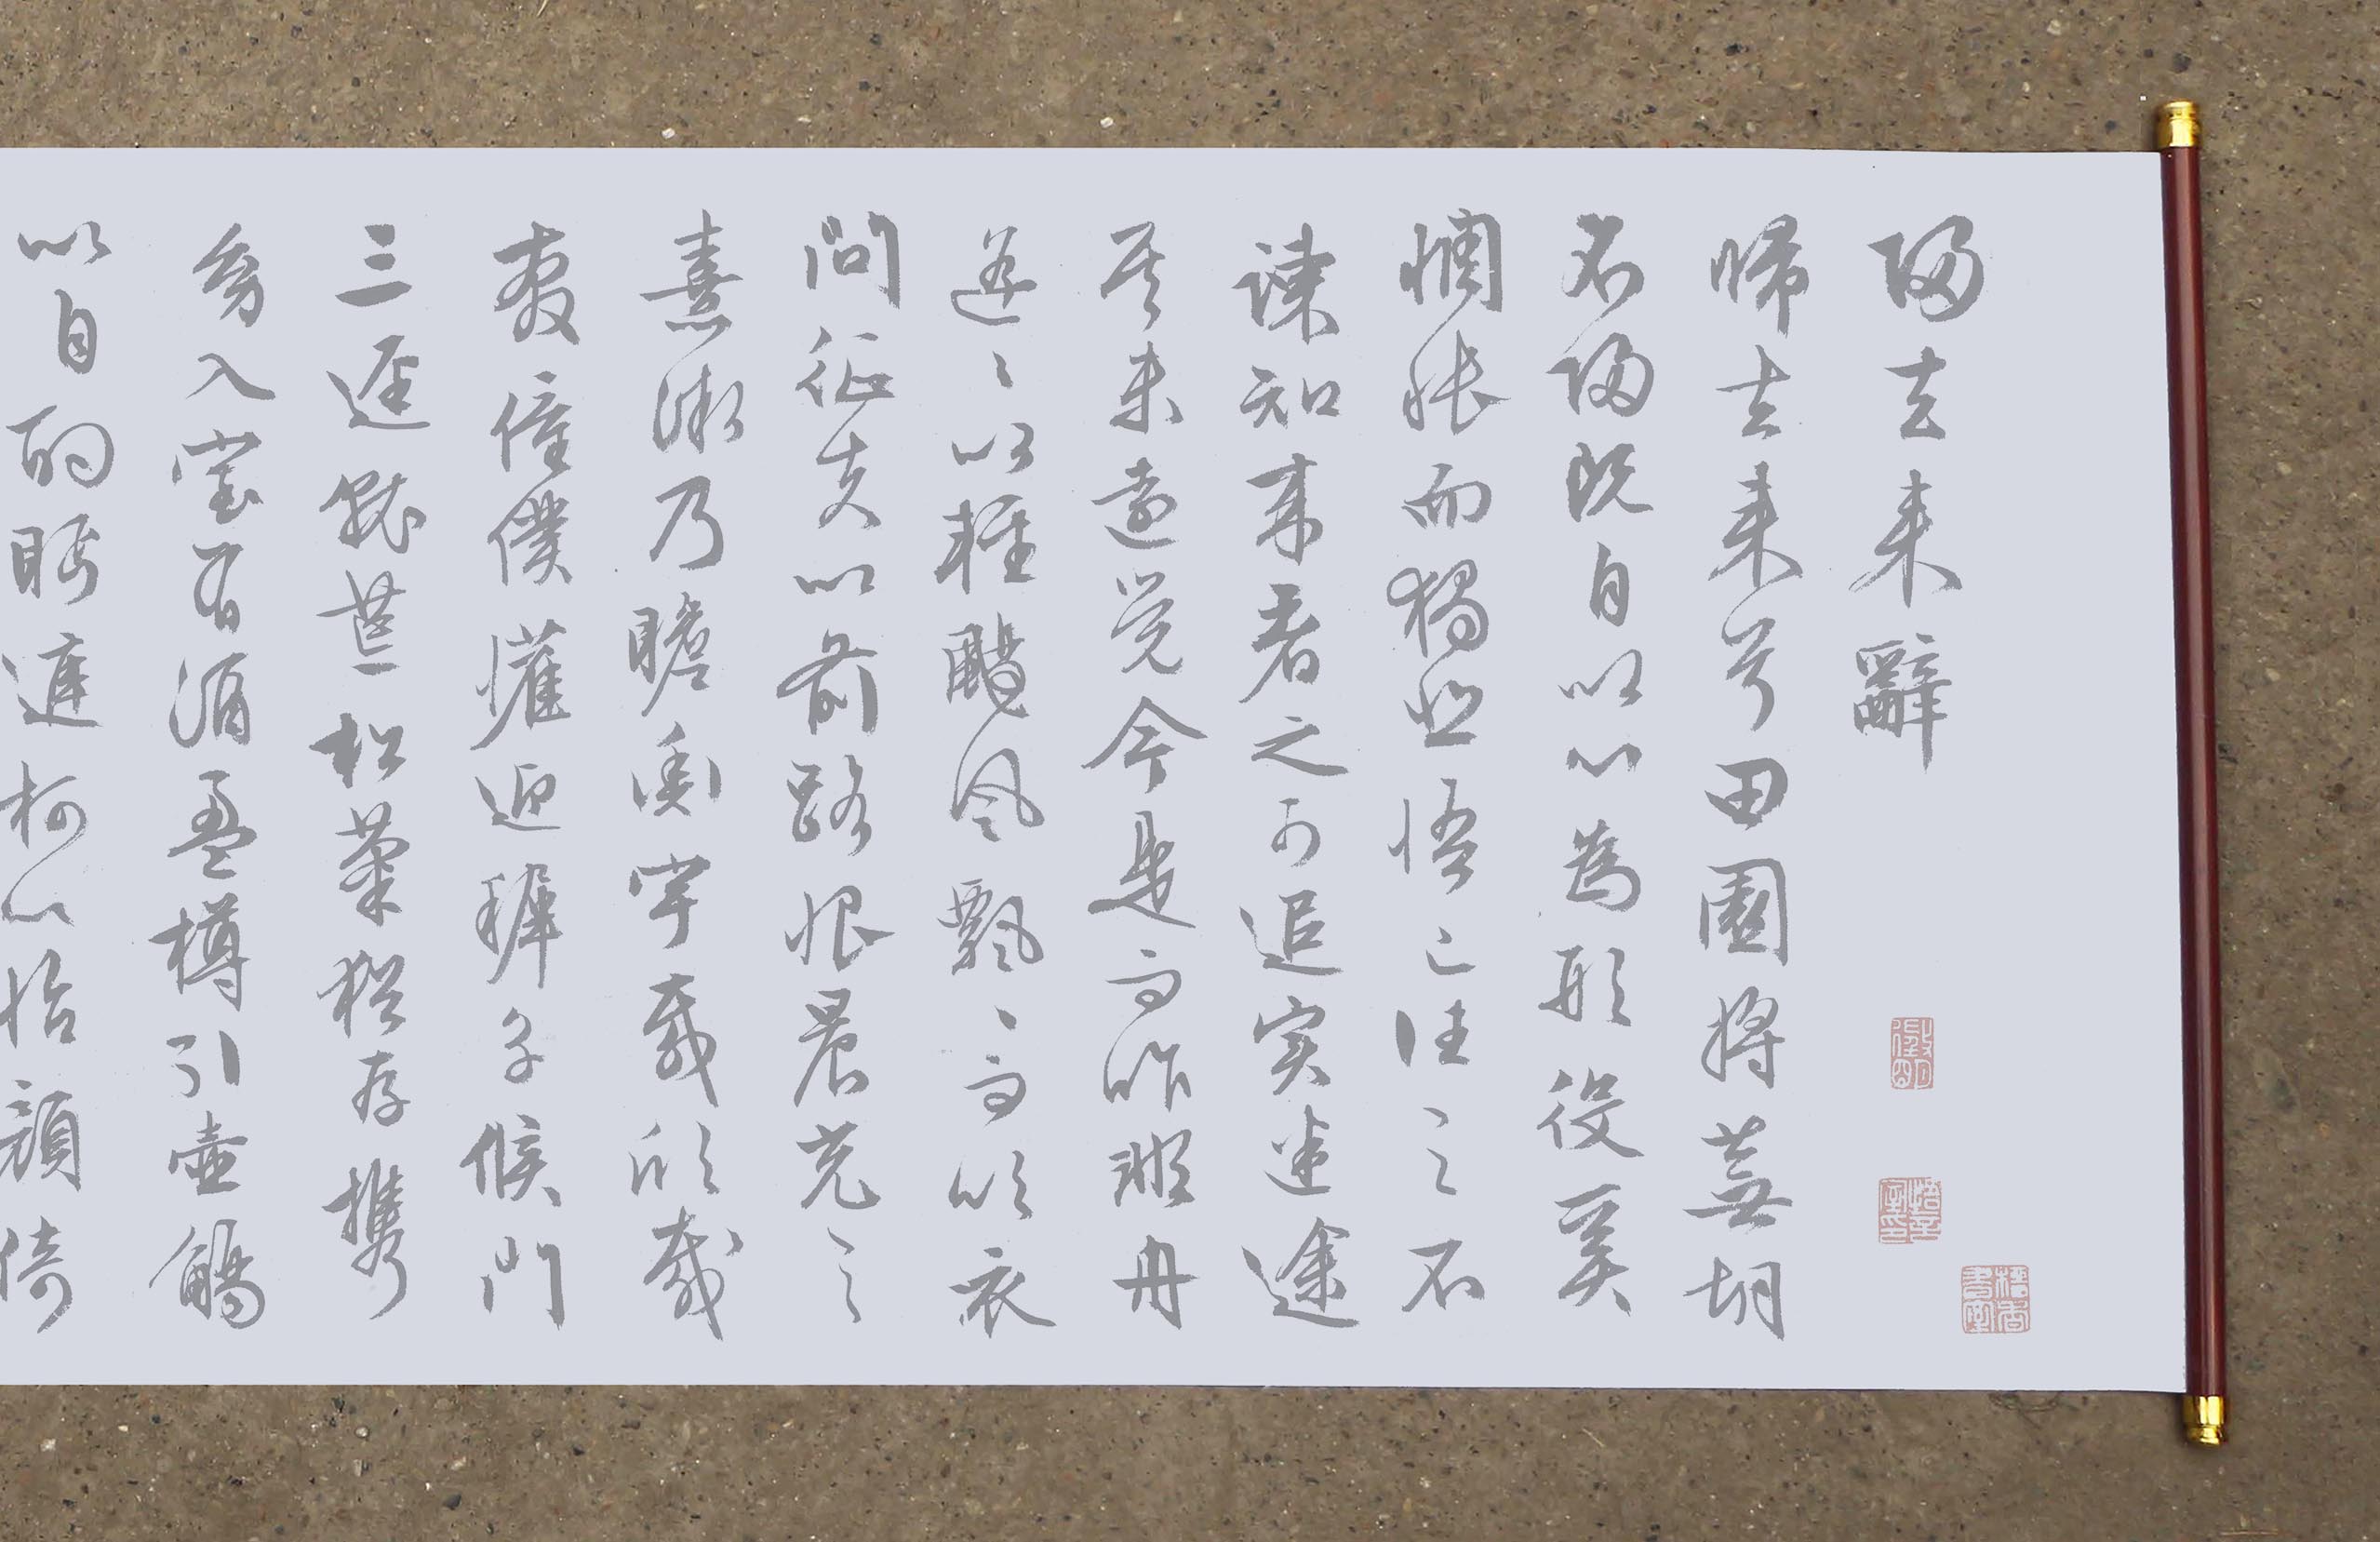 歸去来辭
歸去来兮田園將蕪胡
不歸既自以心為形役奚
惆悵而獨悲悟已往之不
諫知来者之可追実迷途
其未遠覺今是而昨非舟
遥〻以輕颺風飄〻而吹衣
問征夫以前路恨晨光之
熹微乃瞻衡宇載欣載
奔僮僕懽迎稚子候門
三逕就荒松菊猶存攜
幼入室有酒盈樽引壺觴
以自酌眄庭柯以怡顔倚
徵明
悟言室印
梧香書屋